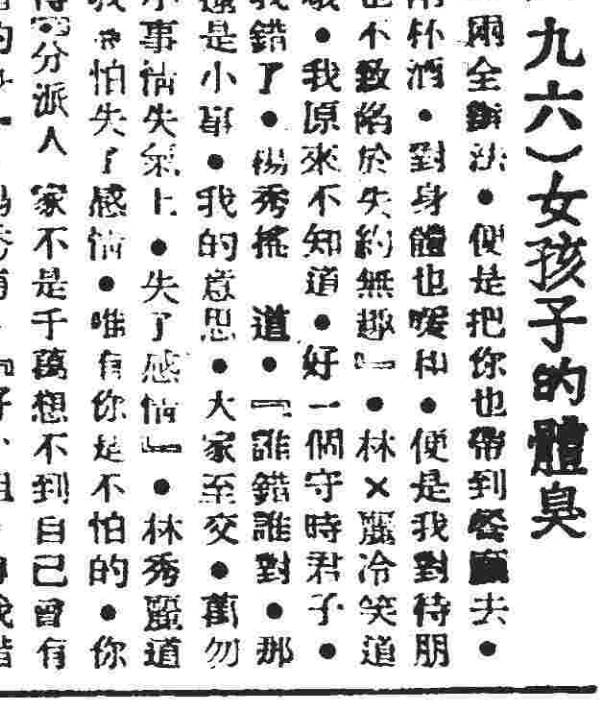 九六）女孩子的體臭
兩全辦法●便是把你也帶到餐廳去●
杯酒●對身體也暖和●便是我對待朋
不致陷於失約無趣』●林×麗冷笑道
●我原來不知道●好一個守時君子●
錯了●楊秀搖　道●『誰錯誰對●那
是小事●我的意思●大家至交●萬勿
事情失氣上●失了感情』●林秀麗道
怕失了感情●唯有你是不怕的●你
分派人　家不是千萬想不到自己曾有